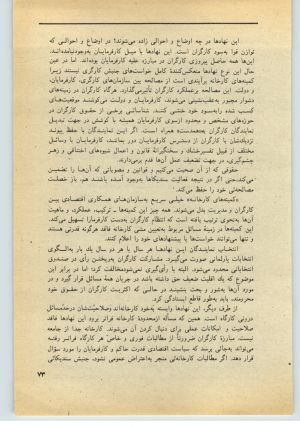 این نهادها در چه اوضاع و احوالی زاده می‌شوند؟ در اوضاع و احوالی که
توازن قوا به‌سود کارگران است. این نهادها با میل کارفرمایان به‌وجود نیامده‌اند.
این‌ها همه حاصل پیروزی کارگران در مبارزه علیه کارفرمایان بوده‌اند. اما در عین
حال این نوع نهادها منعکس‌کنندهٔ کامل خواست‌های جنبش کارگری نیستند زیرا
کمیته‌های کارخانه برآیندی است از مصالحه بین سازمان‌های کارگری، کارفرمایان،
و دولت. این مصالحه برعملکرد کارگران تأثیر می‌گذارد. هرگاه کارگران در زمینه‌های
دشوار مجبور به عقب‌نشینی می‌شوند، کارفرمایان و دولت می‌کوشند موقعیت‌های
کسب شده را به‌سود خود خنثی کنند. شناسائی برخی از حقوق کارگران در
حوزه‌های مشخص و محدود ازسوی کارفرمایان همیشه با کوشش در جهت تبدیل
نمایندگان کارگران به همدست همراه است. اگر این نمایندگان با حفظ پیوند
نزدیکشان با کارگران از دسترس کارفرمایان دور بمانند، کارفرمایان با وسائل
مختلف از قبیل تفسیر خشک و سختگیرانهٔ قانون و اعمال شیوه‌های اختناقی و زهر
چشم‌گیری، در جهت تضعیف عمل آن‌ها قدم برمی‌دارند.
حقوقی که از آن صحبت می‌کنیم و قوانین و مصوباتی که آن‌ها را تضمین
می‌کند، حتی اگر در نتیجه فعالیت سندیکاها به‌وجود آمده باشند هم، باز خصلت
مصالحه‌ئی خود را حفظ می‌کند.
«کمیته‌های کارخانه» خیلی سریع به‌سازمان‌های همکاری اقتصادی بین
کارگران و مدیریت بدل می‌شوند. همه چیز این کمیته‌ها ـ ترکیب، عملکرد، و ماهیت
آن‌ها به‌نحوی ترتیب یافته است که انتظام کارگران به‌دست کارفرما را تسهیل می‌کند.
این کمیته‌ها در زمینهٔ مسائل مربوط به‌تعیین مشی کارخانه فاقد هرگونه قدرتی هستند
و تنها می‌توانند خواست‌ها یا پیشنهادهای خود را اعلام کنند.
انتخاب نمایندگان این نهادها هر سال یا هر دو سال یک بار به‌الگوی
انتخابات پارلمانی صورت می‌گیرد. مشارکت کارگران به‌ریختن رأی در صندوق
انتخاباتی محدود می‌شود. البته با رأی‌گیری نمی‌شود مخالفت کرد؛ اما در برابر این
موضوع که یک اقلیت ضعیف حق داشته باشد در جریان همهٔ مسائل قرار گیرد و در
مورد آن‌ها به‌شور و بحث بنشیند در حالی که اکثریت کارگران از حقوق خود
محرومند، باید به‌طور قاطع ایستادگی کرد.
از طرف دیگر، این نهادها وابسته به‌خود کارخانه‌اند وصلاحیتشان درحد مسائل
درونی کارگاه است. همین که مسأله از محدودهٔ کارخانه فراتر برود این نهادها فاقد
صلاحیت و امکانات عملی برای دنبال کردن آن می‌شوند. کارخانه جدا از جامعه
نیست. مبارزهٔ کارگران ضرورتاً از مطالبات فوری و خاص هر کارگاه فراتر رفته
می‌تواند به‌جائی برسد که سیاست اقتصادی قدرت حاکم و کارفرمایان را مورد سؤال
قرار دهد. اگر مطالبات کارخانه‌ئی منجر به‌اعتراض عمومی نشود، جنبش سندیکائی
۷۳